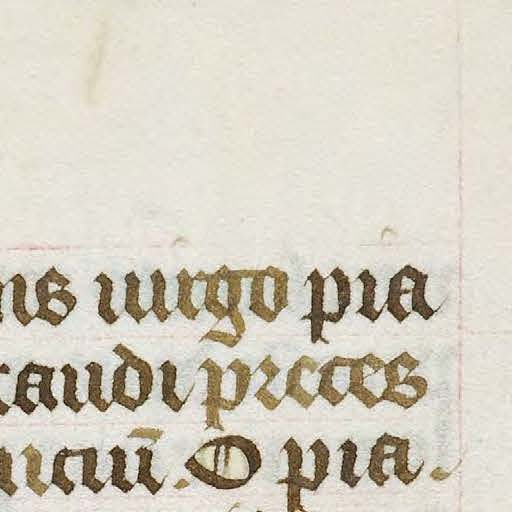 ens uirgo pia
exaudi preces
nciū. O pia.